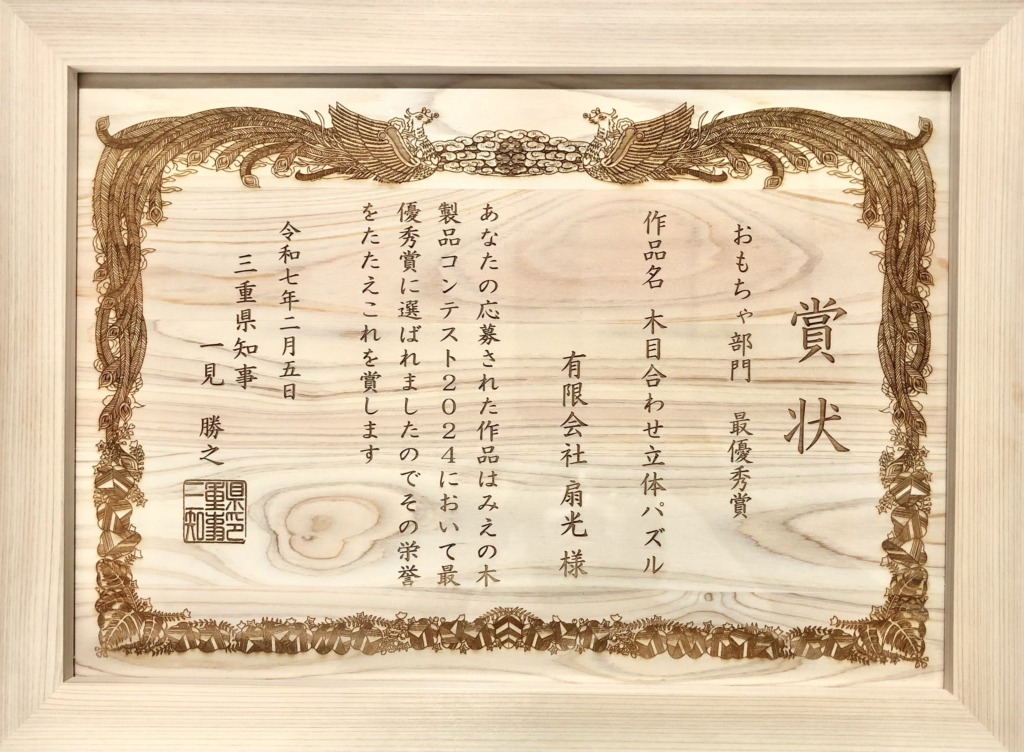 賞状
おもちゃ部門 最優秀賞
作品名 木目合わせ立体パズル
有限会社 扇光 様
あなたの応募された作品はみえの木
製品コンテスト2024において最
優秀賞に選ばれましたのでその栄誉
をたたえこれを賞します
令和七年二月五日
三重県知事
一見 勝之
県印
重事
三知